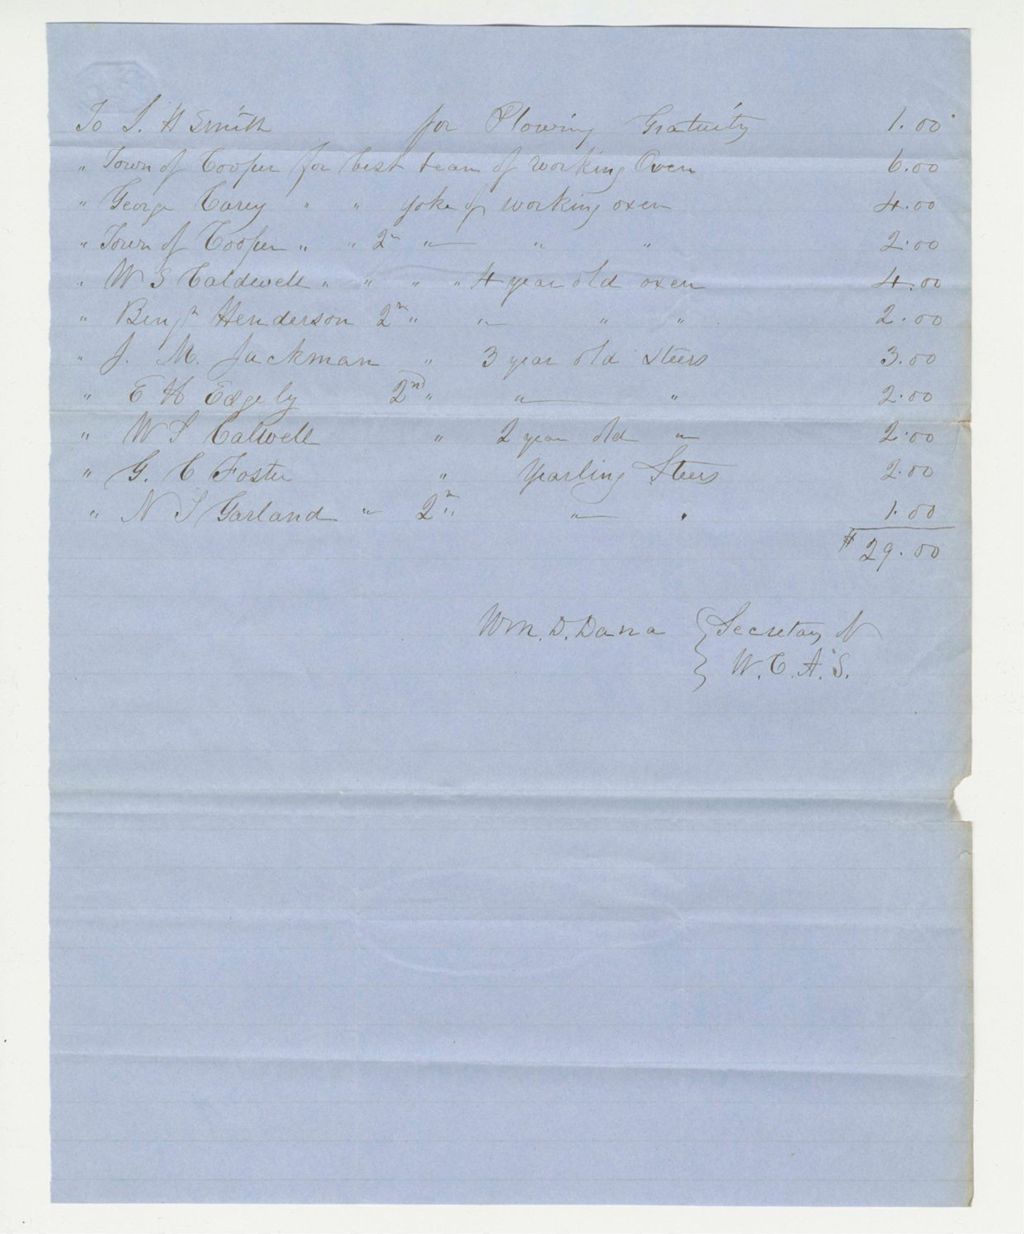 To S. H Smith for Plowing Gratuity 1.00
" Town of Cooper for best team of working Oxen 6.00
" George Carey " " yoke of working oxen 4.00
" Town of Cooper " " 2n " " " 2.00
" W S Caldwell " " " " 4 year old oxen 4.00
" Benjn Henderson 2n " " " " 2.00
" J. M. Jackman " 3 year old Steers 3.00
" E H Edgely 2nd " " " 2.00
" W S Calwell " 2 year old " 2.00
" G. C Foster " Yearling Steers 2.00
" N S Garland " 2n " " " 1.00
$ 29.00
Wm. D. Dana } Secretary N
W. C. A. S.